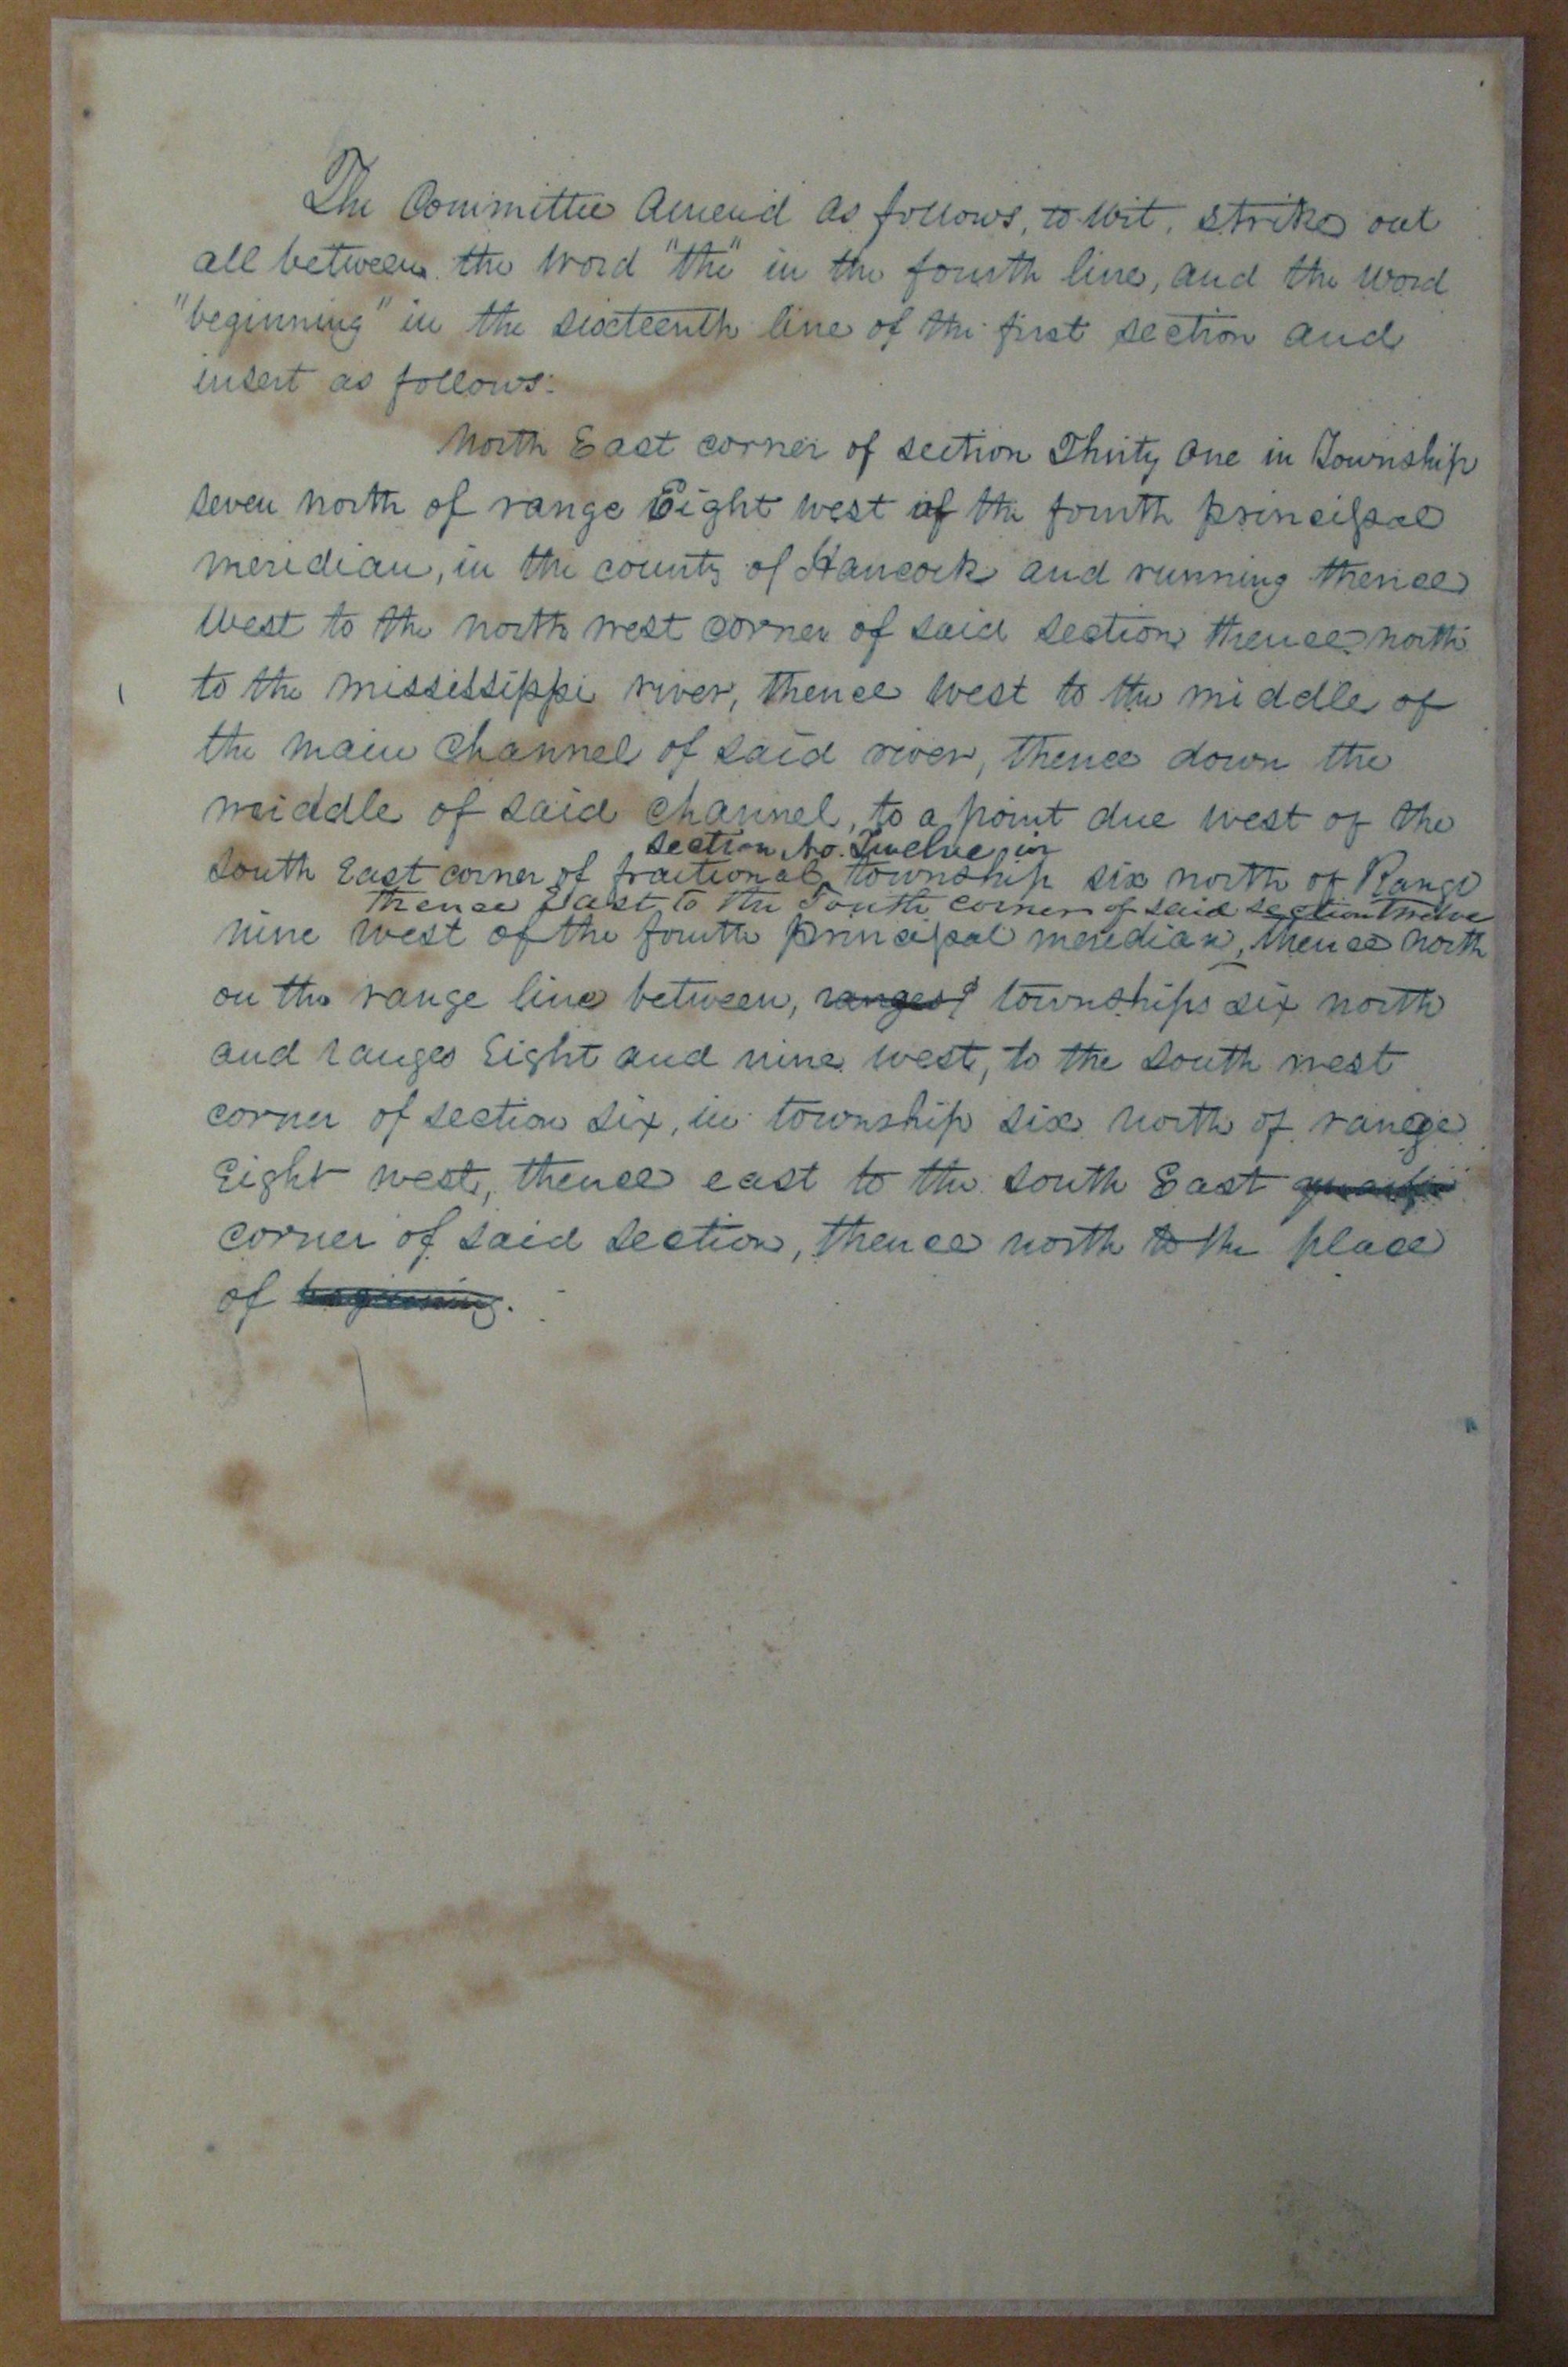 The Committee Amend as follows, to wit, strike out
all between the word "the" in the fourth line, and the word
"beginning" in the sixteenth line of the first section and
insert as follows:
North East corner of section Thirty One in Township
seven north of range Eight west of the fourth principal
meridian, in the county of Hancock and running thence
West to the north west corner of said section thence north
to the mississippi river, thence west to the middle of
the main channel of said river, thence down the
middle of said channel, to a point due west of the
section No. Twelve in
South East corner of fractional township six north of Range
thence East to the South corner of said section twelve
nine west of the fourth principal meridian, thence north
on the range line between, ranges townships six north
and ranges Eight and nine west, to the south west
corner of section six, in township six north of range
Eight west, thence east to the south East
corner of said section, thence north to the place
of beginning.